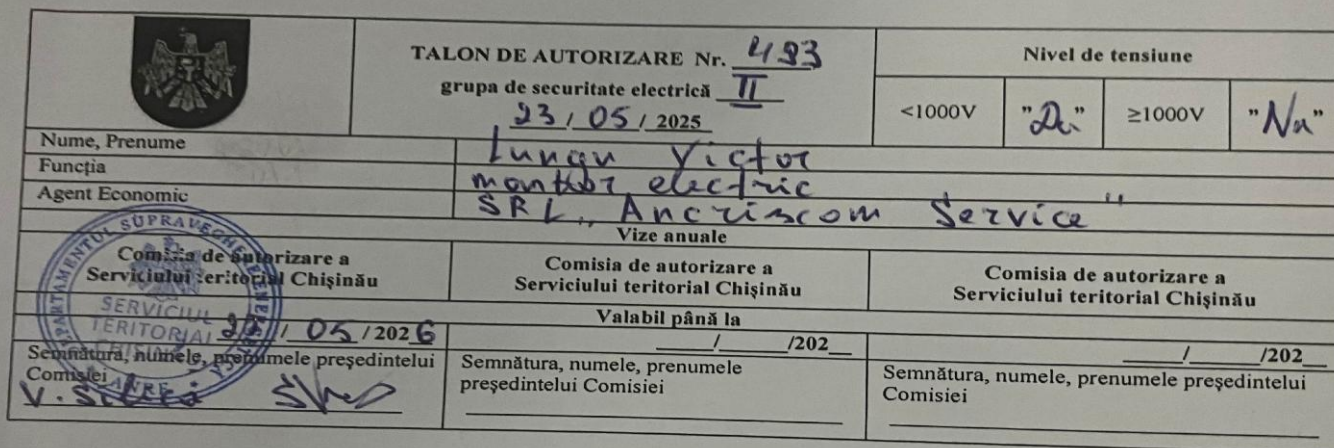 TALON DE AUTORIZARE Nr. 493
grupa de securitate electrică II
23 / 05 / 2025
Nivel de tensiune
<1000V "Da" ≥1000V "Nu"
Nume, Prenume Lungu Victor
Funcția montor electric
Agent Economic SRL „Ancriscom Service"
Vize anuale
Comisia de autorizare a
Serviciului teritorial Chișinău
Comisia de autorizare a
Serviciului teritorial Chișinău
Comisia de autorizare a
Serviciului teritorial Chișinău
Valabil până la
/ 05 / 2026
___/___/202_
___/___/202_
Semnătura, numele, prenumele președintelui
Comisiei
V.
Semnătura, numele, prenumele
președintelui Comisiei
Semnătura, numele, prenumele președintelui
Comisiei
DEPARTAMENTUL SUPRAVEGHERE ENERGETICĂ
SERVICIUL
TERITORIAL
CHIȘINĂU
ANRE